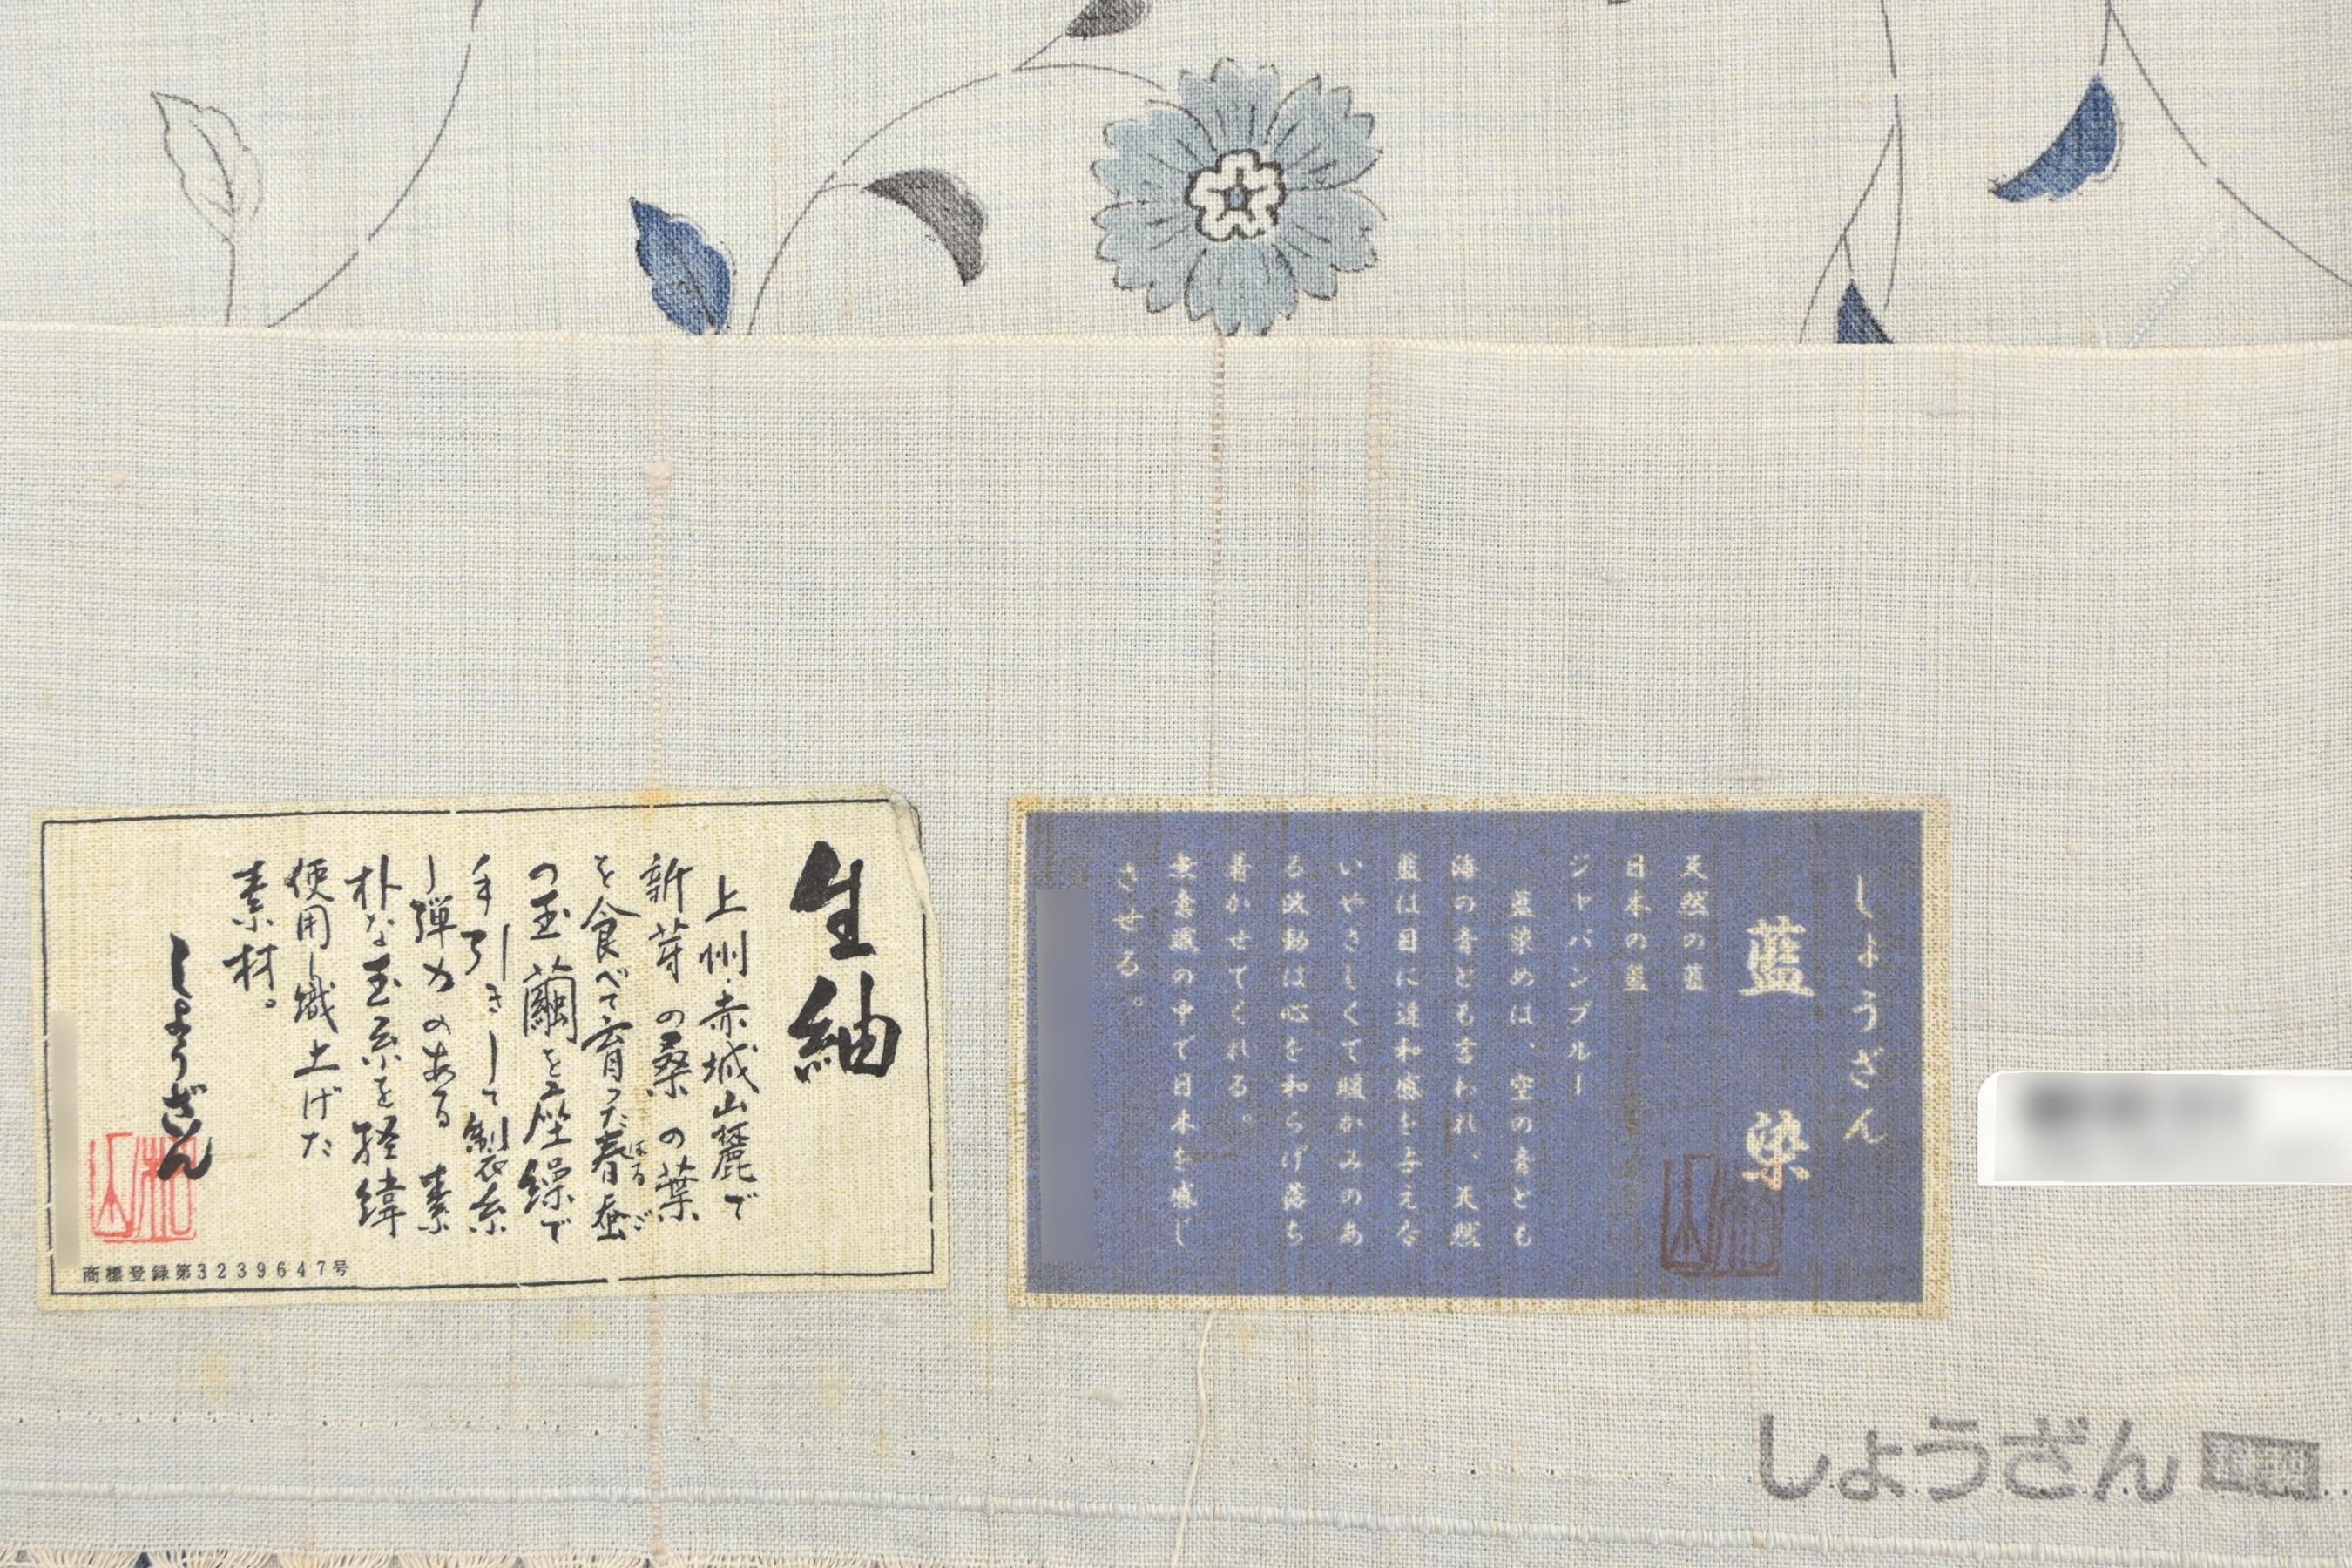 生紬
上州・赤城山麓で
新芽の桑の葉
を食べて育った春蚕
はるご
の玉繭を座繰で
手引きして製糸
し弾力のある素
朴な玉糸を経緯
使用し織上げた
素材。
しょうざん
商標登録第3239647号
しょうざん
藍染
天然の藍
日本の藍
ジャパンブルー
藍染めは、空の青とも
海の青とも言われ、天然
藍は目に違和感を与えな
いやさしくて暖かみのあ
る波動は心を和らげ落ち
着かせてくれる。
無意識の中で日本を感じ
させる。
しょうざん